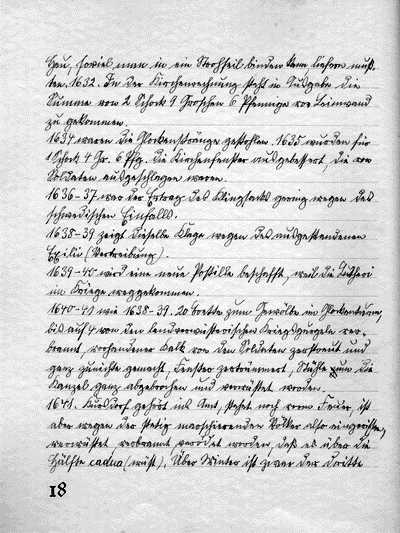 Heu, soviel man in ein Strohseil binden kann liefern muß-
ten. 1632. In der Kirchenrechnung steht in Ausgabe die
Summe von 2 Schock 9 Groschen 6 Pfennige vor Leinwand
zu gekommen.
1634 waren die Glockenstränge gestohlen. 1635 wurden für
1 Schock 4 Gr. 6 Pfg. die Kirchenfenster ausgebessert, die von
Soldaten ausgeschlagen waren.
1636-37 war der Ertrag des Klingsacks gering wegen des
schwedischen Einfalls.
1638-39 zeigt dieselbe Klage wegen des ausgestandenen
Exilii (Vertreibung).
1639-40 wird eine neue Postille beschafft, weil die Lutheri
im Kriege weggekommen.
1640-41 wie 1638-39. 20 Bretter zum Gewölbe im Glockenturm,
bis auf 4 von den landverwüsterischen Kriegsgurgeln ver-
brannt, vorhandener Kalk von den Soldaten zerstreut und
ganz zunichte gemacht, Fenster zertrümmert, Stühle um die
Kanzel ganz abgebrochen und verwüstet worden.
1641. dorf gehört ins Amt, stehet noch vom Feuer, ist
aber wegen der stetig marschierenden Völker also eingerissen,
verwüstet, verbrannt verödet worden, daß es über die
Hälfte caduc (wüst). Über Winter ist zwar der dritte
18